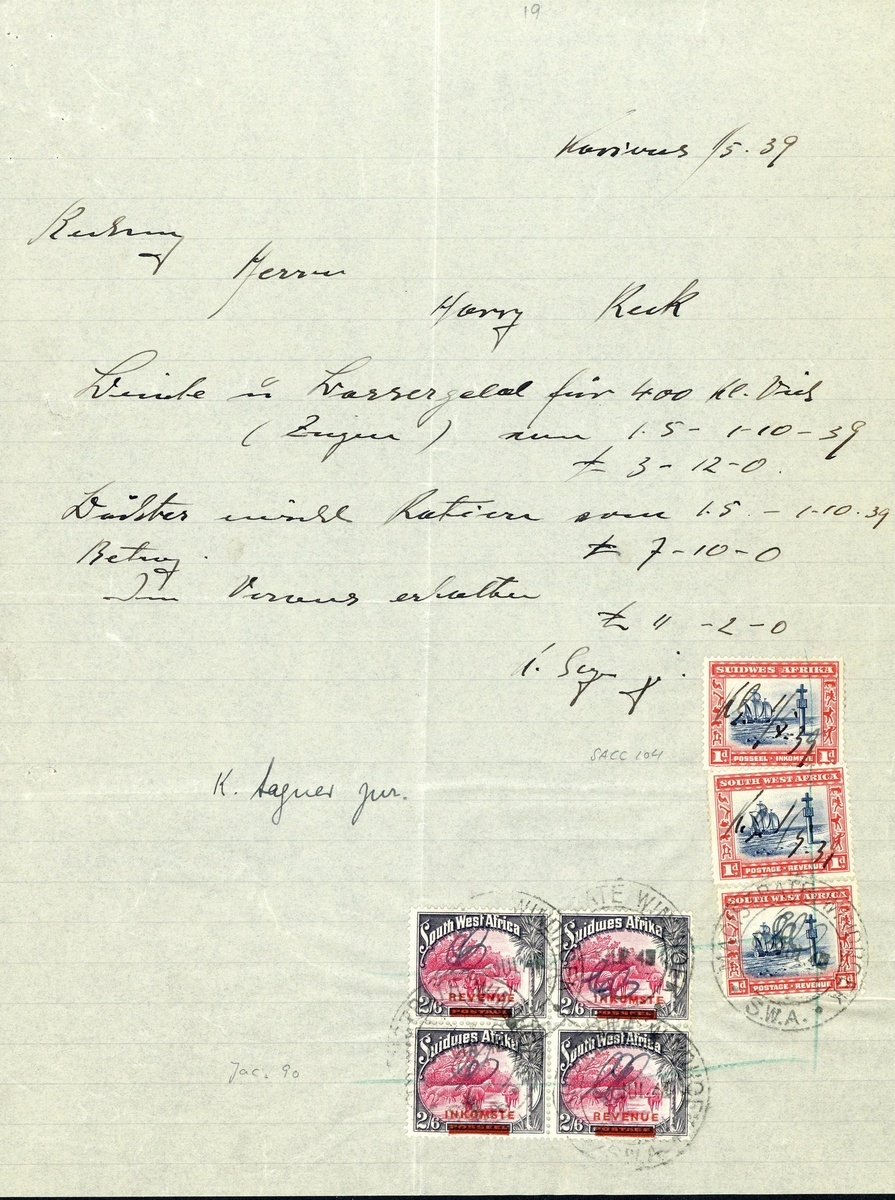 19
1/5.39
Rechnung
Herrn
Harry Keck
Weide u Wassergeld für 400 Kl. Vieh
(Ziegen) vom 1.5 - 1-10-39
£ 3-12-0.
Wächter Ration vom 1.5. - 1-10.39
Betrag. £ 7-10-0
Im Voraus erhalten
£ 11-2-0
SACC 104
K. jur.
Jac. 90
SUIDWES AFRIKA
1d POSSEEL·INKOMSTE 1d
SOUTH WEST AFRICA
1d POSTAGE·REVENUE 1d
SOUTH WEST AFRICA
1d POSTAGE·REVENUE 1d
MAGISTRATE WINDHOEK
S.W.A.
South West Africa
2/6 REVENUE
POSTAGE
Suidwes Afrika
2/6 INKOMSTE
POSSEEL
Suidwes Afrika
2/6 INKOMSTE
POSSEEL
South West Africa
2/6 REVENUE
POSTAGE